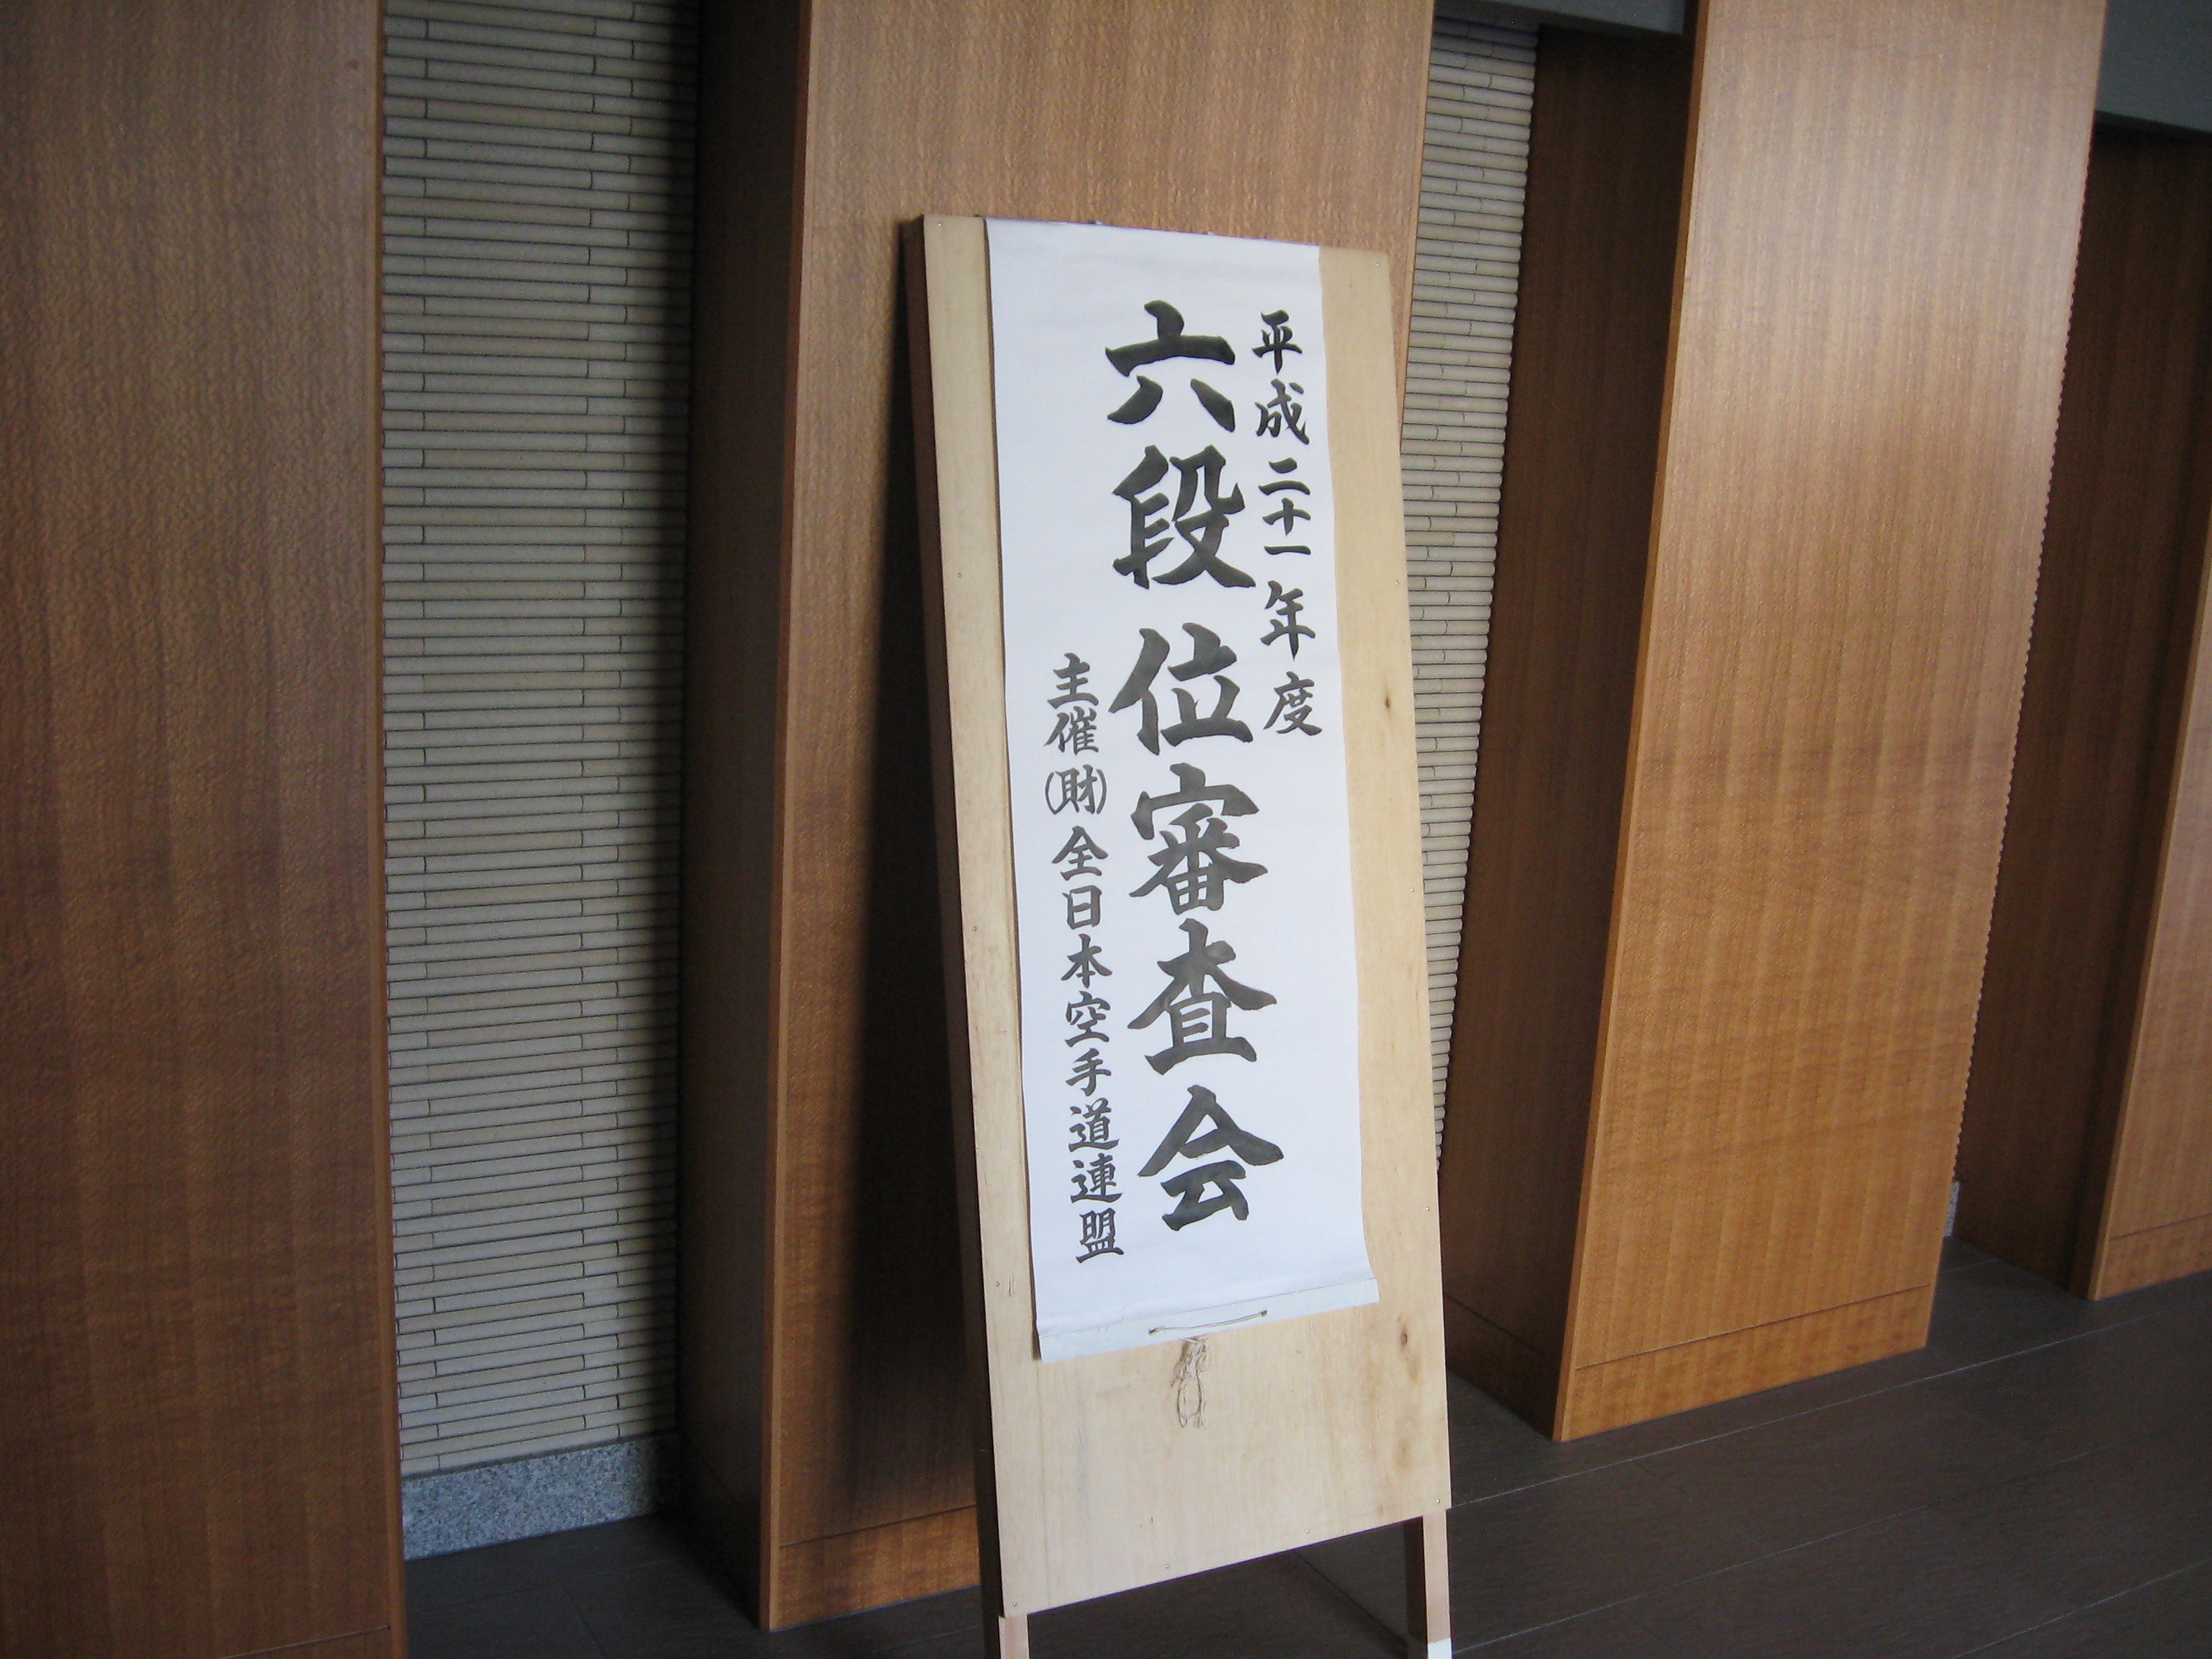 平成二十一年度
六段位審査会
主催(財)全日本空手道連盟